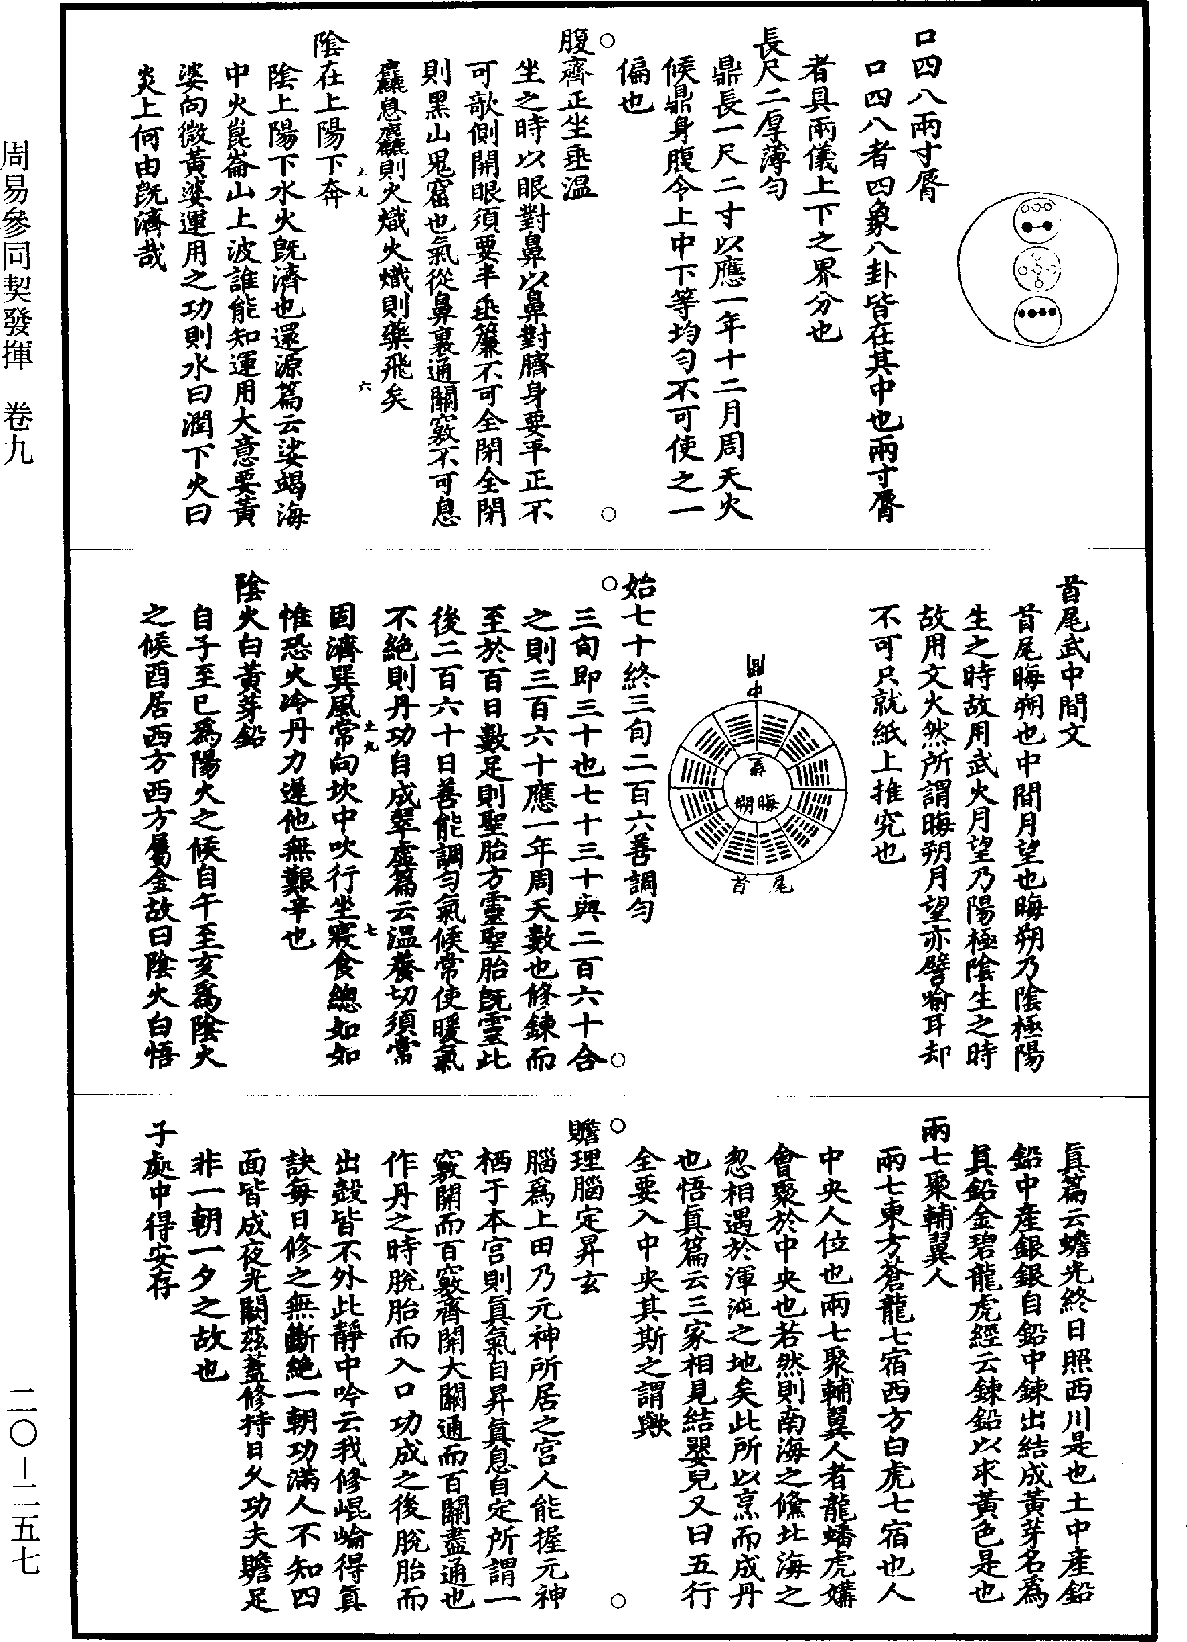 口四八兩寸脣
口四八者四象八卦皆在其中也兩寸脣
者具兩儀上下之界分也
長尺二厚薄勻
鼎長一尺二寸以應一年十二月周天火
候鼎身腹令上中下等均勻不可使之一
偏也
腹齊正坐垂温
坐之時以眼對鼻以鼻對臍身要平正不
可欹側開眼須要半垂簾不可全閉全閉
則黑山鬼窟也氣從鼻裏通關竅不可息
麤息麤則火熾火熾則藥飛矣
陰在上陽下奔
陰上陽下水火既濟也還源篇云娑竭海
中火崑崙山上波誰能知運用大意要黃
婆向微黃婆運用之功則水曰潤下火曰
炎上何由既濟哉
首尾武中間文
首尾晦朔也中間月望也晦朔乃陰極陽
生之時故用武火月望乃陽極陰生之時
故用文火然所謂晦朔月望亦譬喻耳却
不可只就紙上推究也
鼎中
弄
晦
朔
尾
首
始七十終三旬二百六善調勻
三旬即三十也七十三十與二百六十合
之則三百六十應一年周天數也修鍊而
至於百日數足則聖胎方靈聖胎既靈此
後二百六十日善能調勻氣候常使暖氣
不絶則丹功自成翠虛篇云温養切須常
固濟巽風常向坎中吹行坐寢食總如如
惟恐火冷丹力遲他無艱辛也
陰火白黃芽鉛
自子至巳爲陽火之候自午至亥爲陰火
之候酉居西方西方屬金故曰陰火白悟
真篇云蟾光終日照西川是也土中產鉛
鉛中產銀銀自鉛中鍊出結成黃芽名爲
真鉛金碧龍虎經云鍊鉛以求黃色是也
兩七聚輔翼人
兩七東方蒼龍七宿西方白虎七宿也人
中央人位也兩七聚輔翼人者龍蟠虎媾
會聚於中央也若然則南海之儵北海之
忽相遇於渾沌之地矣此所以烹而成丹
也悟真篇云三家相見結嬰兒又曰五行
全要入中央其斯之謂歟
贍理腦定昇玄
腦爲上田乃元神所居之宮人能握元神
栖于本宮則真氣自昇真息自定所謂一
竅開而百竅齊開大關通而百關盡通也
作丹之時脫胎而入口功成之後脫胎而
出殼皆不外此靜中吟云我修崐崘得真
訣每日修之無斷絶一朝功滿人不知四
面皆成夜光闕茲蓋修持日久功夫贍足
非一朝一夕之故也
子處中得安存
周易參同契發揮 卷九
二〇-二五七